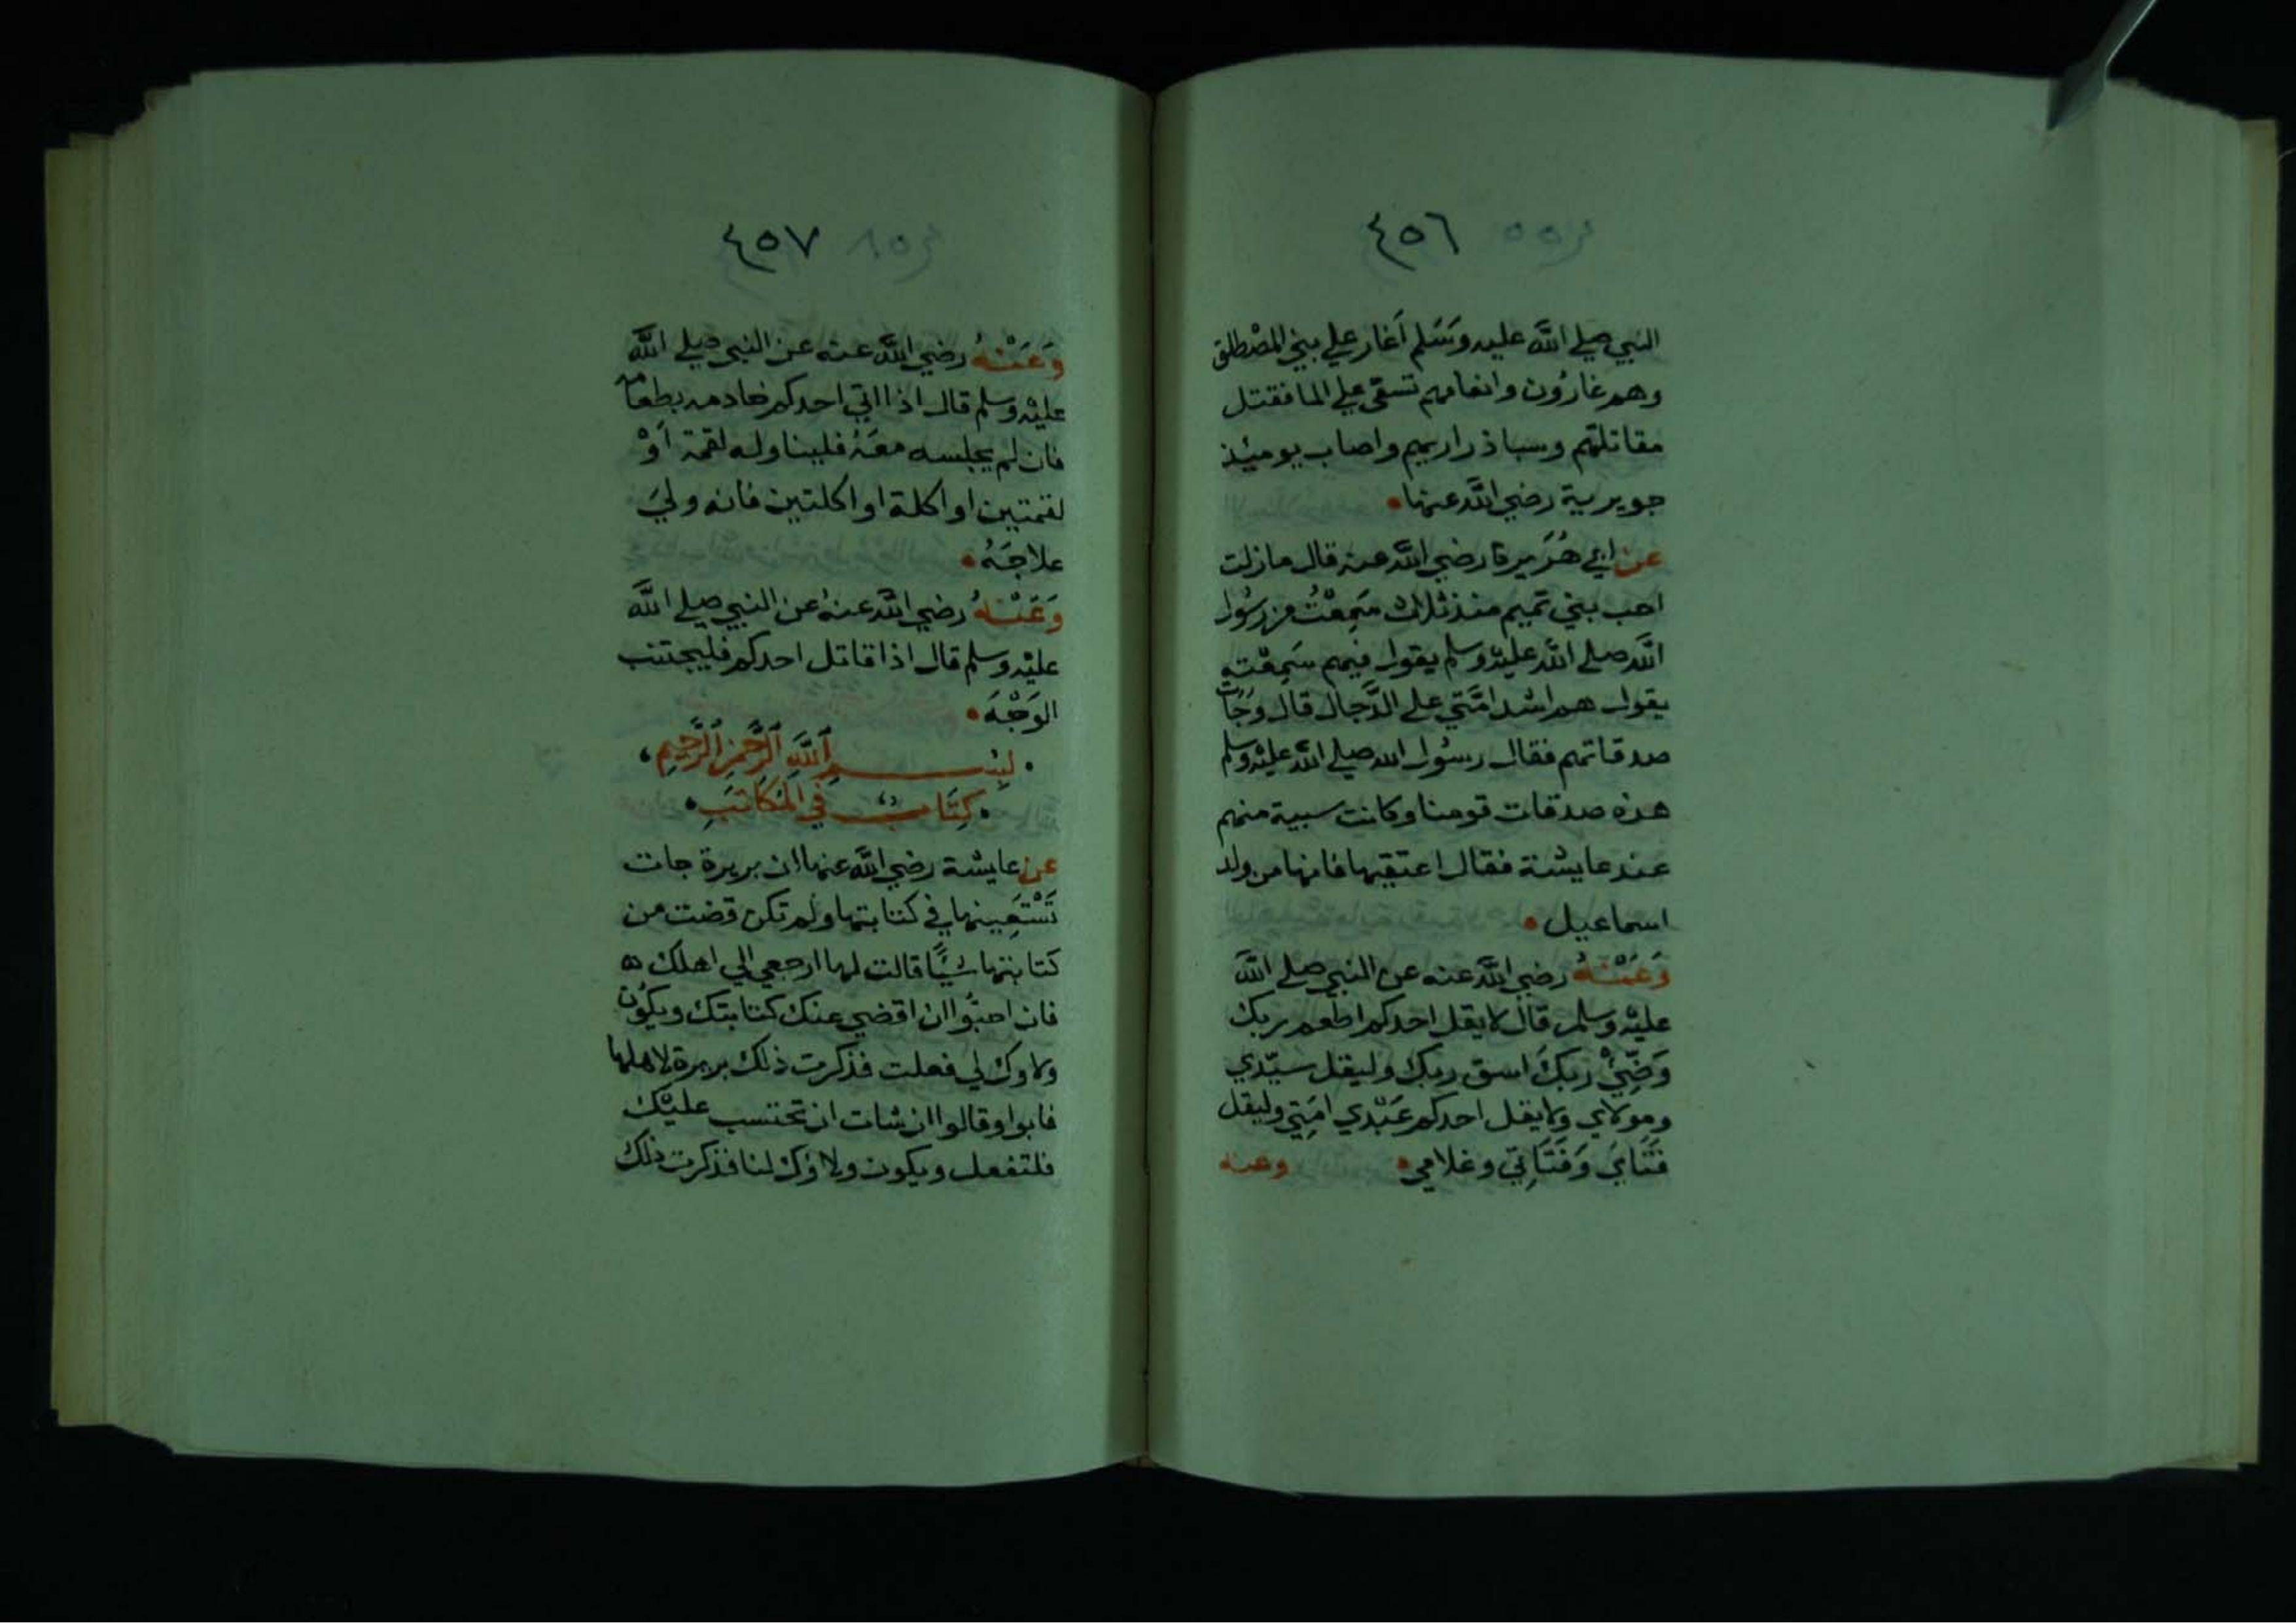 ٤٥٦
النبي صلي اللَّه عليه وَسَلم أَغار علي بني المصْطلق
وهم غارُون وانعامهم تسقى علي الما فقتل
مقاتلتهم وسبا ذراريهم واصاب يوميُذ
جويرية رضي اللَّه عنها
عن ابي هُرَيرة رضي اللَّه عنه قال مازلت
احب بني تميم منذ ثلاث سَمِعْتُ من رسُول
اللَّه صلي اللَّه عليْه وسلم يقول فيهم سَمِعْته
يقول هم اشد امَّتي علي الدَّجال قال وَجَات
صدقاتهم فقال رسُول الله صلي اللَّه عليْه وسلم
هذه صدقات قومنا وكانت سبية منهم
عند عايشة فقال اعتقيها فانها من ولد
اسماعيل
وَعَنْهُ رضي اللَّه عنه عن النبي صلي اللَّه
عليْه وسلم قال لا يقل احدكم اطعم ربك
وَضِّيْ ربكَ اسق ربك وليقل سيّدي
ومولاي ولا يقل احدكم عَبْدي امَتِي وليقل
فَتَايَ وَفَتَاتِي وغلامي وعنه
٤٥٧
وَعَنْهُ رضي اللَّه عنه عن النبي صلي اللَّه
عليْه وسلم قال اذا اتي احدكم خادمه بطعامه
فان لم يجلسه معَهُ فليناوله لقمة اَوْ
لقمتين او اكلة او اكلتين فانه وليَ
علاجَهُ
وَعَنْهُ رضي اللَّه عنهُ عن النبي صلي اللَّه
عليْه وسلم قال اذا قاتل احدكم فليجتنب
الوَجْهَ
بِسْمِ اللَّهِ الرَّحْمَنِ الرَّحِيمِ
كِتَابٌ في المُكَاتَبِ
عن عايشة رضي اللَّه عنها ان بريرة جات
تَسْتَعِينها في كتابتها ولم تكن قضت من
كتابتها شيًا قالت لها ارجعي الي اهلك
فان احبُّوا ان اقضي عنك كتابتك ويكوُن
ولاوك لي فعلت فذكرت ذلك بريرة لاهلها
فابوا وقالوا ان شات ان تحتسب عليْك
فلتفعل ويكون ولاؤك لنا فذكرت ذلك